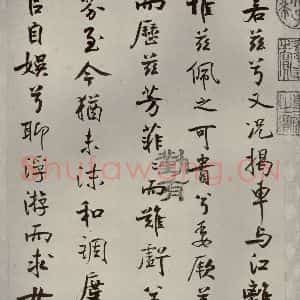 若茲兮又況揭車与江離
惟茲佩之可貴兮委厥美
而歷茲芳菲菲而難虧兮
芬至今猶未沫和調度
㠯自娛兮聊浮游而求女
Shufawang.CN